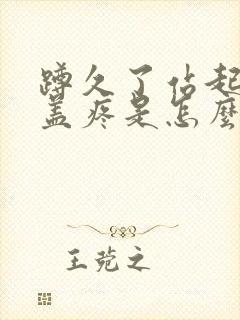 蹲久了站起
盖疼是怎麼
王蒐之